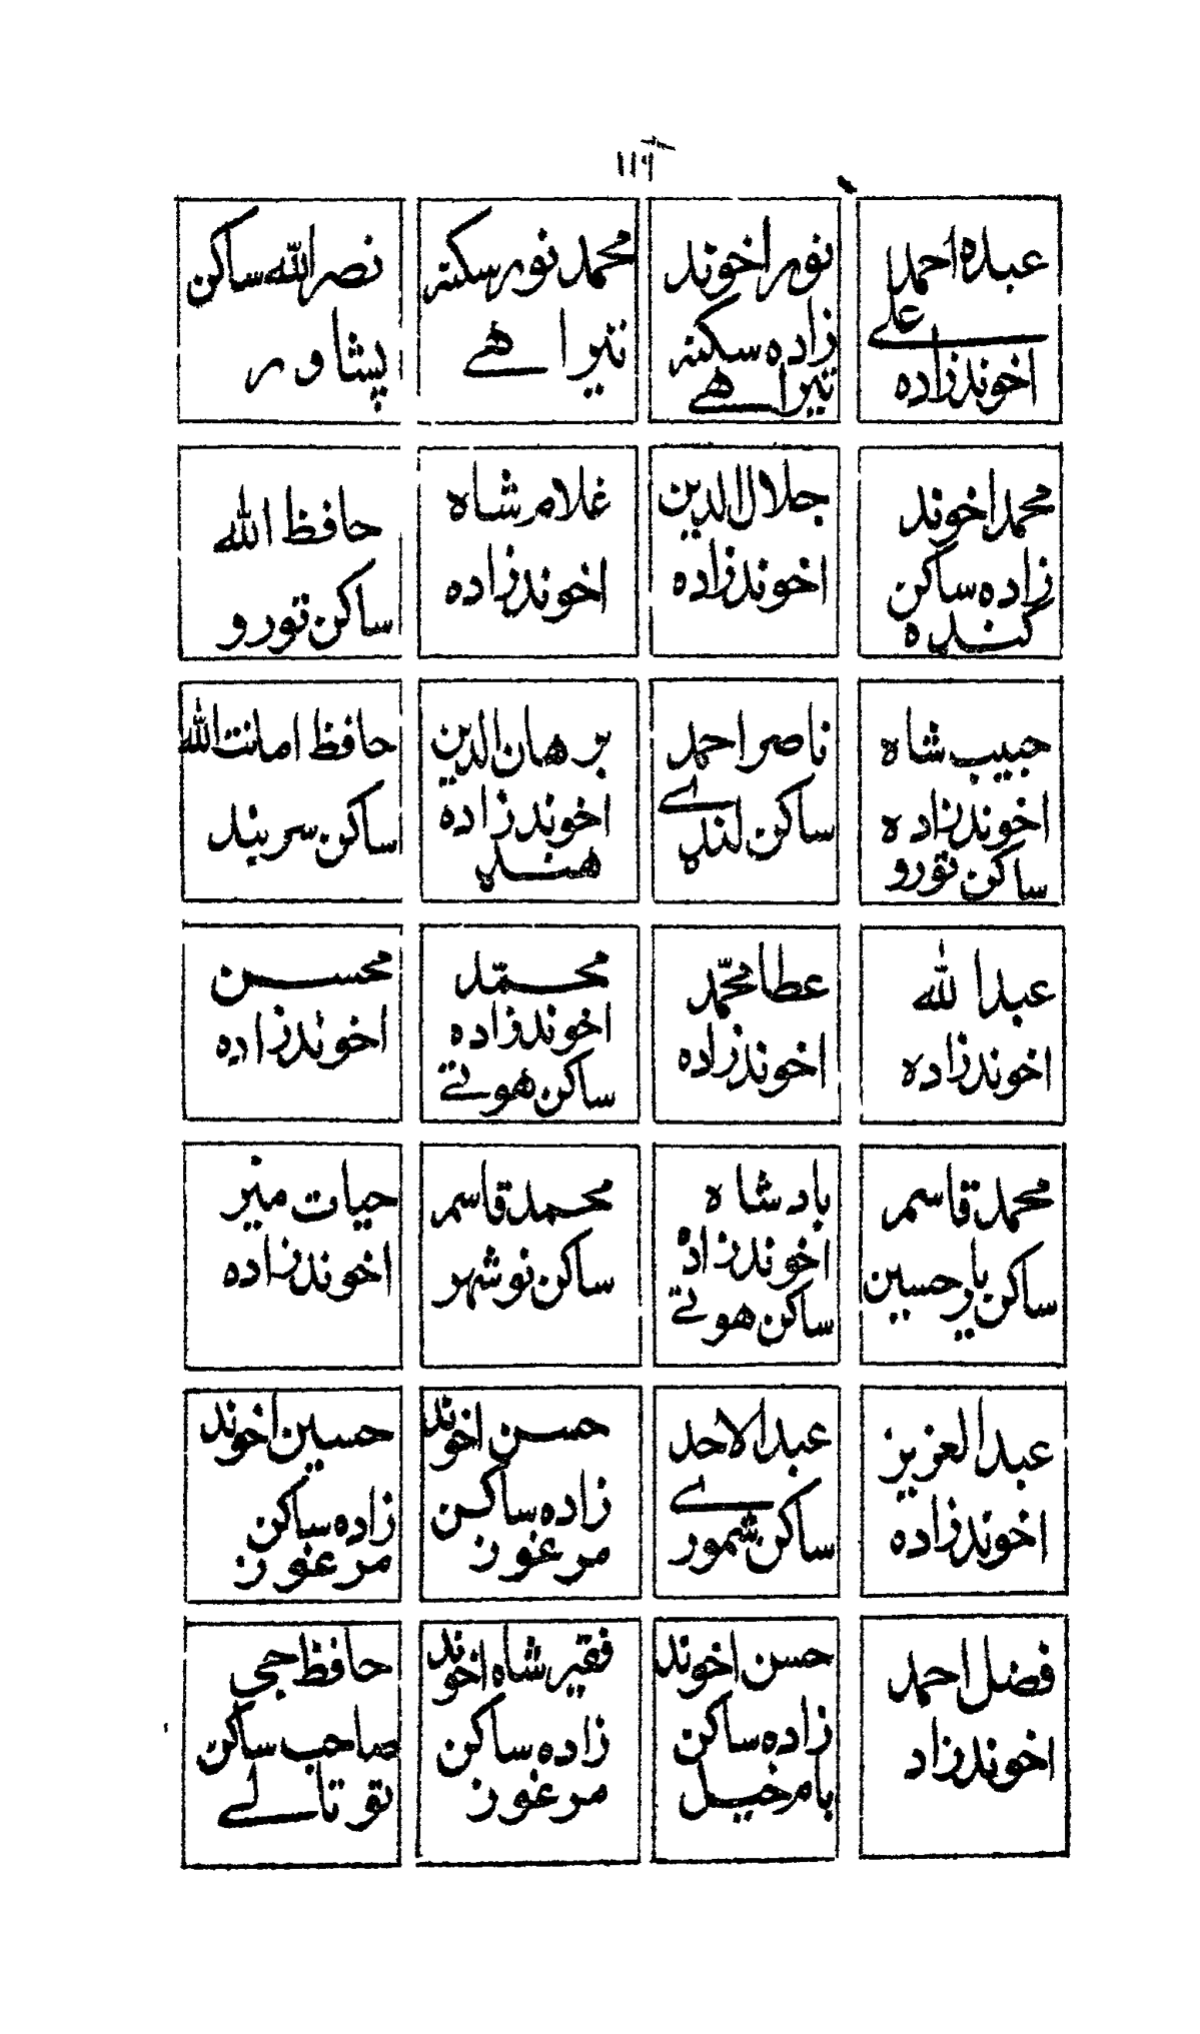 ١١٩
عبده احمد
علے
اخوندزاده
نور اخوند
زاده سکنہ
تیراهے
محمد نور سکنہ
تیراهے
نصرالله ساکن
پشاور
محمد اخوند
زاده ساکن
کنډه
جلال الدین
اخوندزاده
غلام شاه
اخوندزاده
حافظ الله
ساکن تورو
حبیب شاه
اخوندزاده
ساکن تورو
ناصر احمد
ساکن لنډے
برهان الدین
اخوندزاده
هنډ
حافظ امانت الله
ساکن سربند
عبدالله
اخوندزاده
عطا محمّد
اخوندزاده
محمّد
اخوندزاده
ساکن هوتے
محسن
اخوندزاده
محمد قاسم
ساکن یارحسین
بادشاه
اخوندزاده
ساکن هوتے
محمد قاسم
ساکن نوشهر
حیات منیر
اخوندزاده
عبدالعزیز
اخوندزاده
عبدالاحد
ساکن شموزے
حسن اخوند
زاده ساکن
مرغوز
حسین اخوند
زاده ساکن
مرغوز
فضل احمد
اخوندزاد
حسن اخوند
زاده ساکن
بامخیل
فقیر شاه اخوند
زاده ساکن
مرغوز
حافظ جی
صاحب ساکن
توتالے